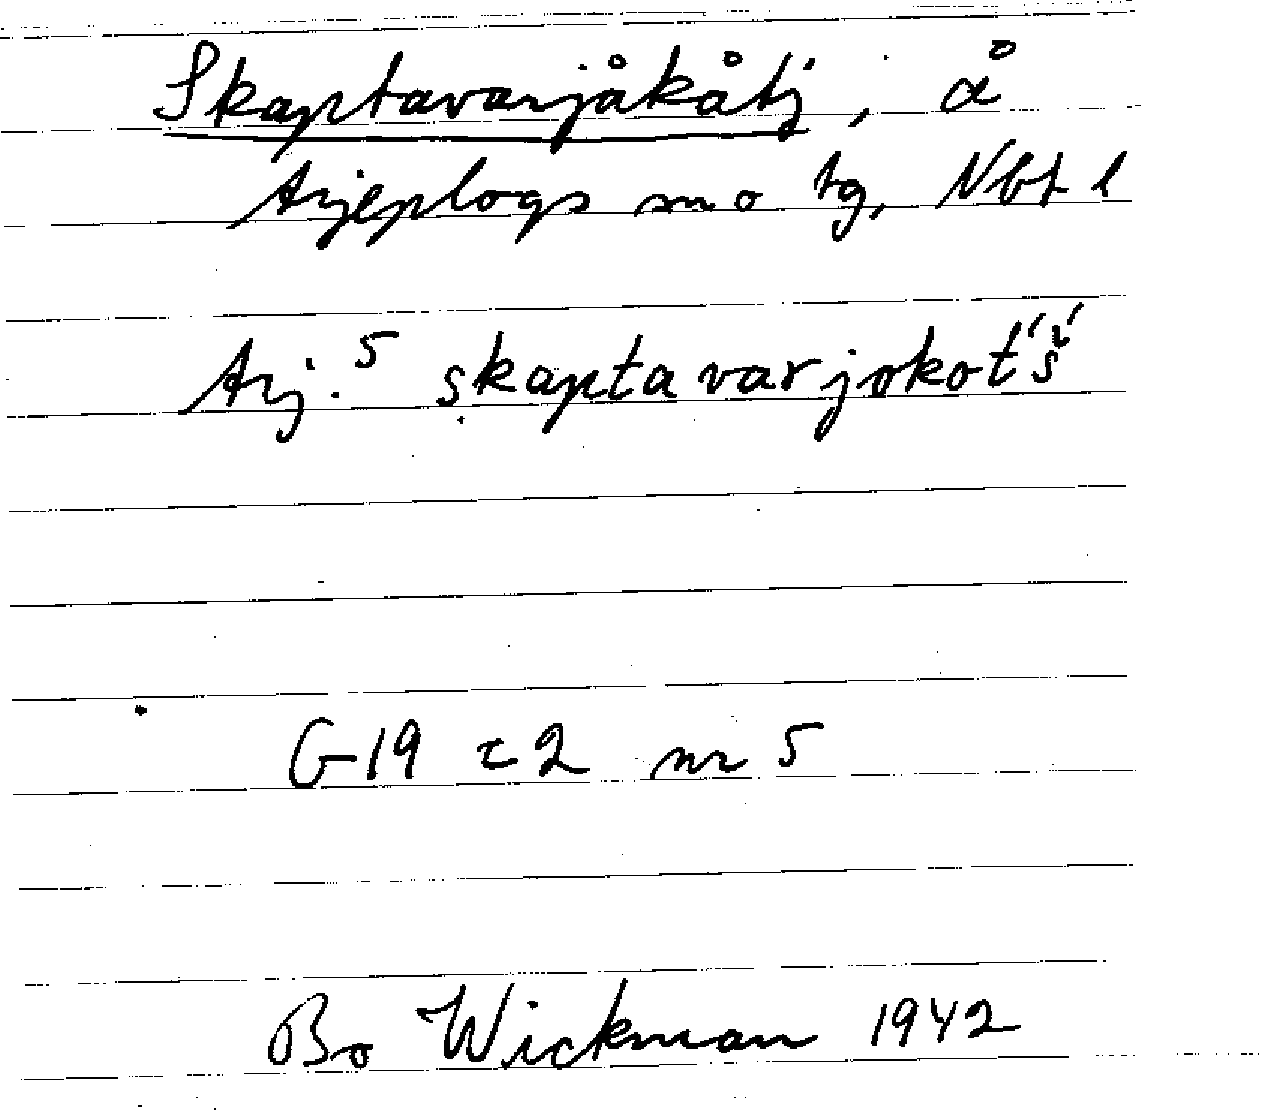 Skaptavarjåkåtj, å
Arjeplogs sn o tg, Nbt l
Arj. 5 skaptavarjokot́š́
G19 c2 nr 5
Bo Wickman 1942